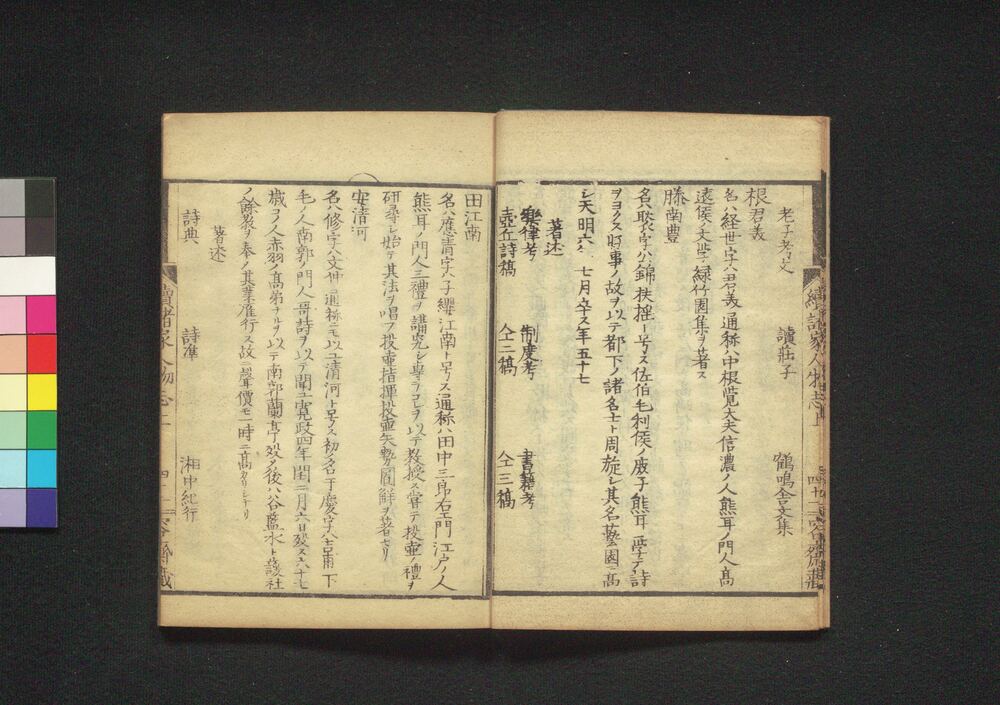 老子考文 讀莊子 鶴鳴舎文集
根君義
名ハ経世字ハ君義通称ハ中根覚大夫信濃ノ人熊耳ノ門人高
遠侯ノ文学緑竹園集ヲ著ス
滕南豊
名ハ 字ハ公錦扶揺ト号ス佐伯毛利侯ノ庶子熊耳ニ学テ詩
ヲヨクス好事ノ故ヲ以テ都下ノ諸名士ト周旋シ其名藝園ニ高
シ天明六年七月卒ス年五十七
著述
樂律考 制度考 書籍考
壺丘詩稿 仝二稿 仝三稿
田江南
名ハ應清字ハ子纓江南ト号ス通称ハ田中三郎右エ門江戸ノ人
熊耳ノ門人三禮ヲ講究シ專ラコレヲ以テ教授ス嘗テ投壺ノ禮ヲ
研尋シ始テ其法ヲ唱フ投壺指揮投壺矢勢圖解ヲ著セリ
安清河
名ハ修字ハ文仲通称モ以上清河ト号ス初ノ名ハ慶字ハ吉甫下
毛ノ人南郭ノ門人哥詩ヲ以テ聞ユ寛政四年閏二月六日殁ス六十七
城ヨノ人赤羽ノ高弟ナルヲ以テ南郭蘭亭殁ノ後ハ谷藍水ト護社
ノ餘裂ヲ奉ノ其業雁行ス故ニ聲價モ一時ニ高カリシナリ
著述
詩典 詩準 湘中紀行
續諸家人物志上 四十二 容齋藏